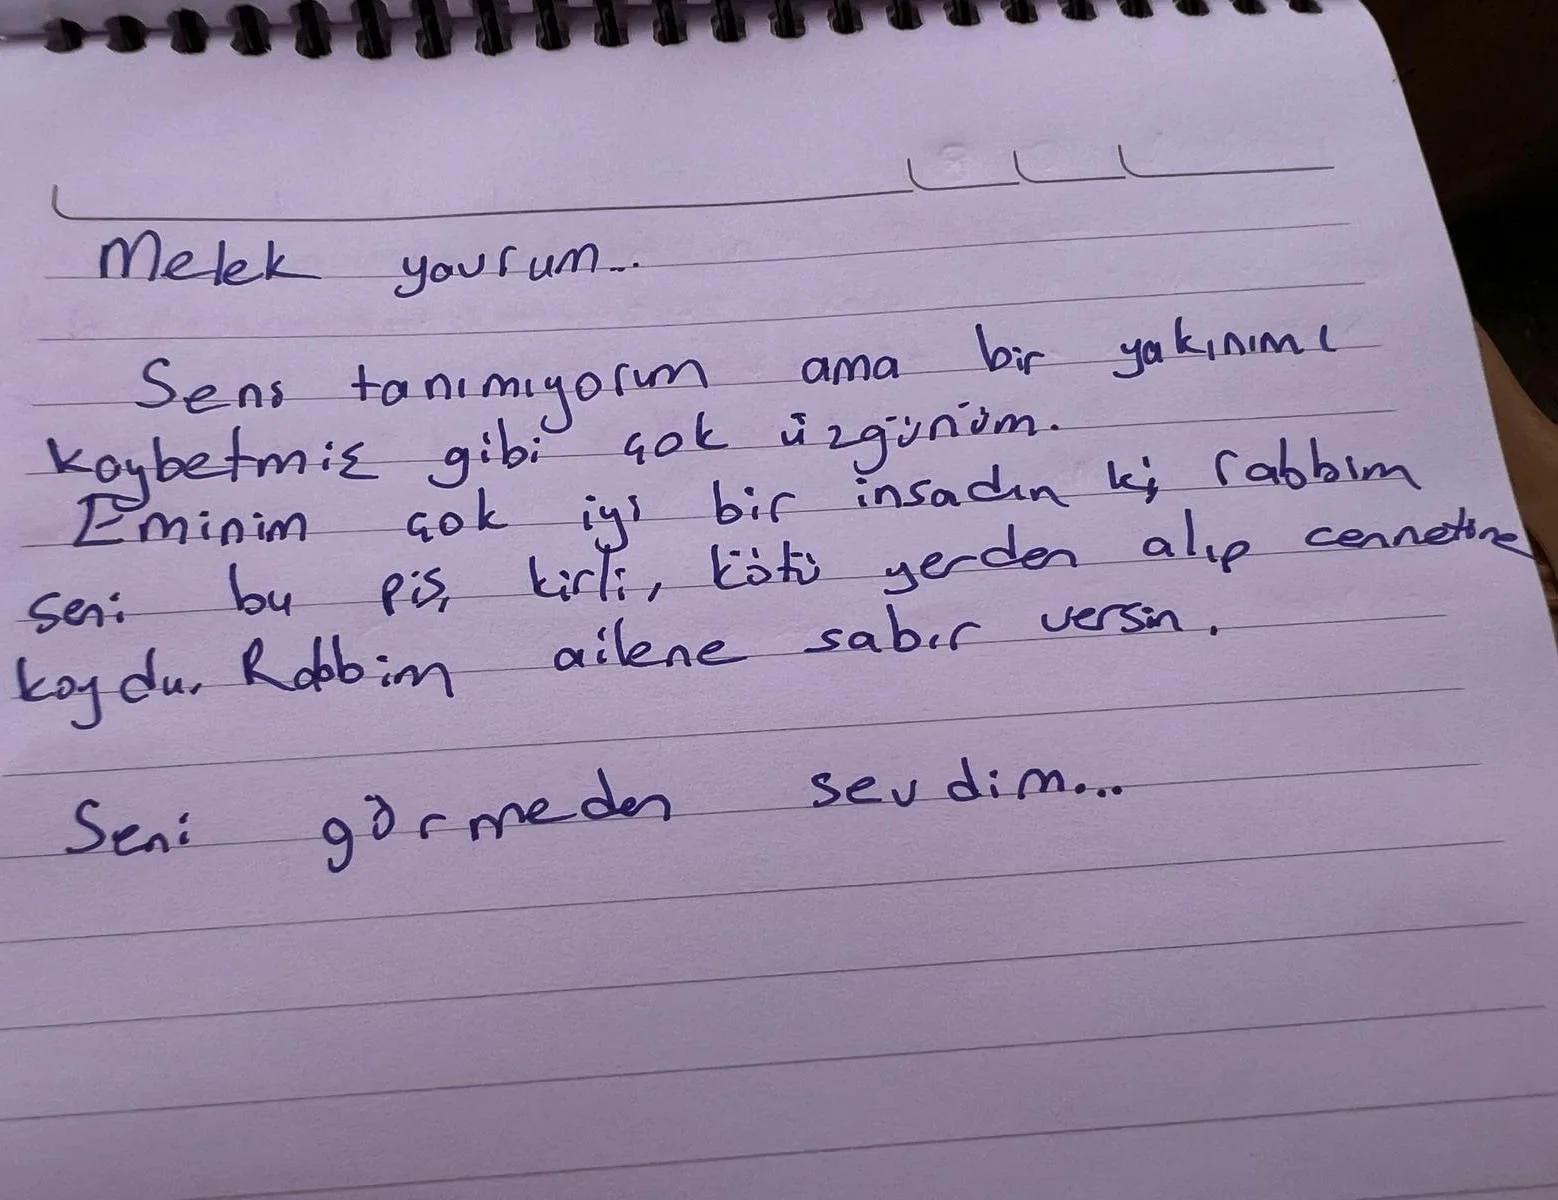 Melek yavrum...
Seni tanımıyorum ama bir yakınımı
kaybetmiş gibi çok üzgünüm.
Eminim çok iyi bir insadın ki rabbim
seni bu pis, kirli, kötü yerden alıp cennetine
koydu. Rabbim ailene sabır versin.
Seni görmeden sevdim...